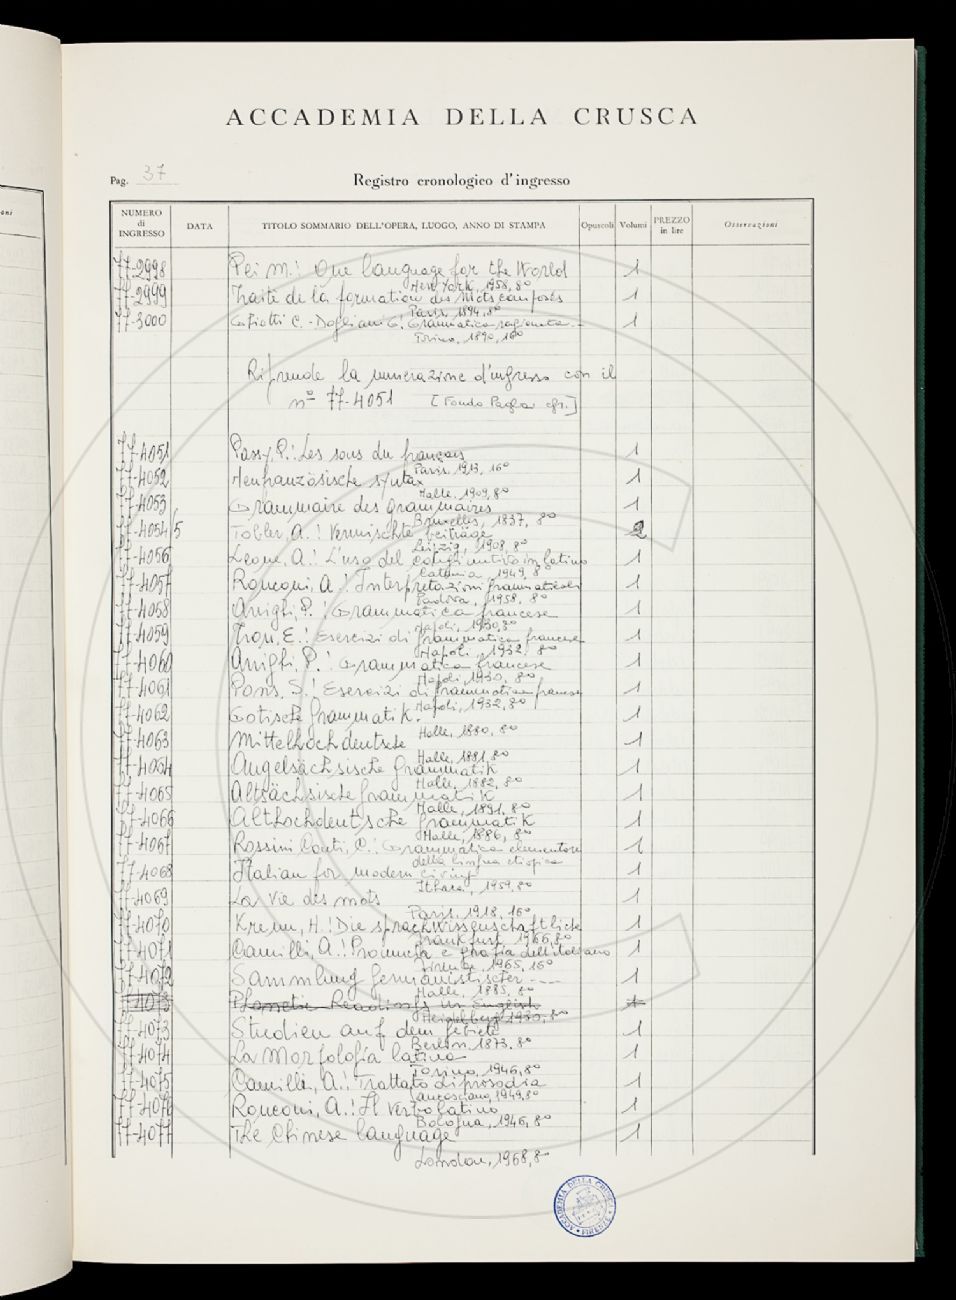 ACCADEMIA DELLA CRUSCA
Pag. 37
Registro cronologico d'ingresso
NUMERO di INGRESSO DATA TITOLO SOMMARIO DELL'OPERA, LUOGO, ANNO DI STAMPA Opuscoli Volumi PREZZO in lire Osservazioni
77-2998 Pei M.: One language for the World 1
New York, 1958, 8º
77-2999 Traité de la formation des Mots composés 1
Paris, 1894, 8º
77-3000 C. - Dogliani G.: Grammatica ragionata - 1
Torino, 1890, 16º
Riprende la numerazione d'ingresso con il
nº 77-4051 [Fondo Pagliai]
77-4051 Passy, P.: Les sons du français 1
Paris, 1913, 16º
77-4052 Neufranzösische syntax 1
Halle, 1909, 8º
77-4053 Grammaire des grammaires 1
Bruxelles, 1837, 8º
77-4054/5 Tobler, A.: Vermischte beiträge 2
Leipzig, 1908, 8º
77-4056 Leone, A.: L'uso del congiuntivo in latino 1
Catania, 1949, 8º
77-4057 Ronconi, A.: Interpretazioni grammaticali 1
Padova, 1958, 8º
77-4058 Arrighi, P.: Grammatica francese 1
Napoli, 1930, 8º
77-4059 Tron, E.: Esercizi di grammatica francese 1
Napoli, 1932, 8º
77-4060 Arrighi, P.: Grammatica francese 1
Napoli, 1930, 8º
77-4061 Pons, S.: Esercizi di grammatica francese 1
Napoli, 1932, 8º
77-4062 Gotische grammatik. 1
Halle, 1880, 8º
77-4063 Mittelhochdeutsche 1
Halle, 1881, 8º
77-4064 Angelsächsische grammatik 1
Halle, 1882, 8º
77-4065 Altsächsische grammatik 1
Halle, 1891, 8º
77-4066 Althochdeutsche grammatik 1
Halle, 1886, 8º
77-4067 Rossini Conti, C.: Grammatica elementare 1
della lingua etiopica
77-4068 Italian for modern living 1
Ithaca, 1959, 8º
77-4069 La vie des mots 1
Paris, 1918, 16º
77-4070 Krenn, H.: Die sprachwissenschaftliche 1
Frankfurt, 1966, 8º
77-4071 Camilli, A.: Pronuncia e grafia dell'italiano 1
Firenze, 1965, 16º
77-4072 Sammlung germanistischer ---- 1
Halle, 1885, 8º
77-4073 Phonetic Readings in English 1
Heidelberg, 1930, 8º
77-4073 Studien auf dem gebiete 1
Berlin, 1873, 8º
77-4074 La Morfologia latina 1
Torino, 1946, 8º
77-4075 Camilli, A.: Trattato di prosodia 1
Lanciano, 1949, 8º
77-4076 Ronconi, A.: Il verbo latino 1
Bologna, 1946, 8º
77-4077 The Chinese language 1
London, 1968, 8º
ACCADEMIA DELLA CRUSCA • FIRENZE •